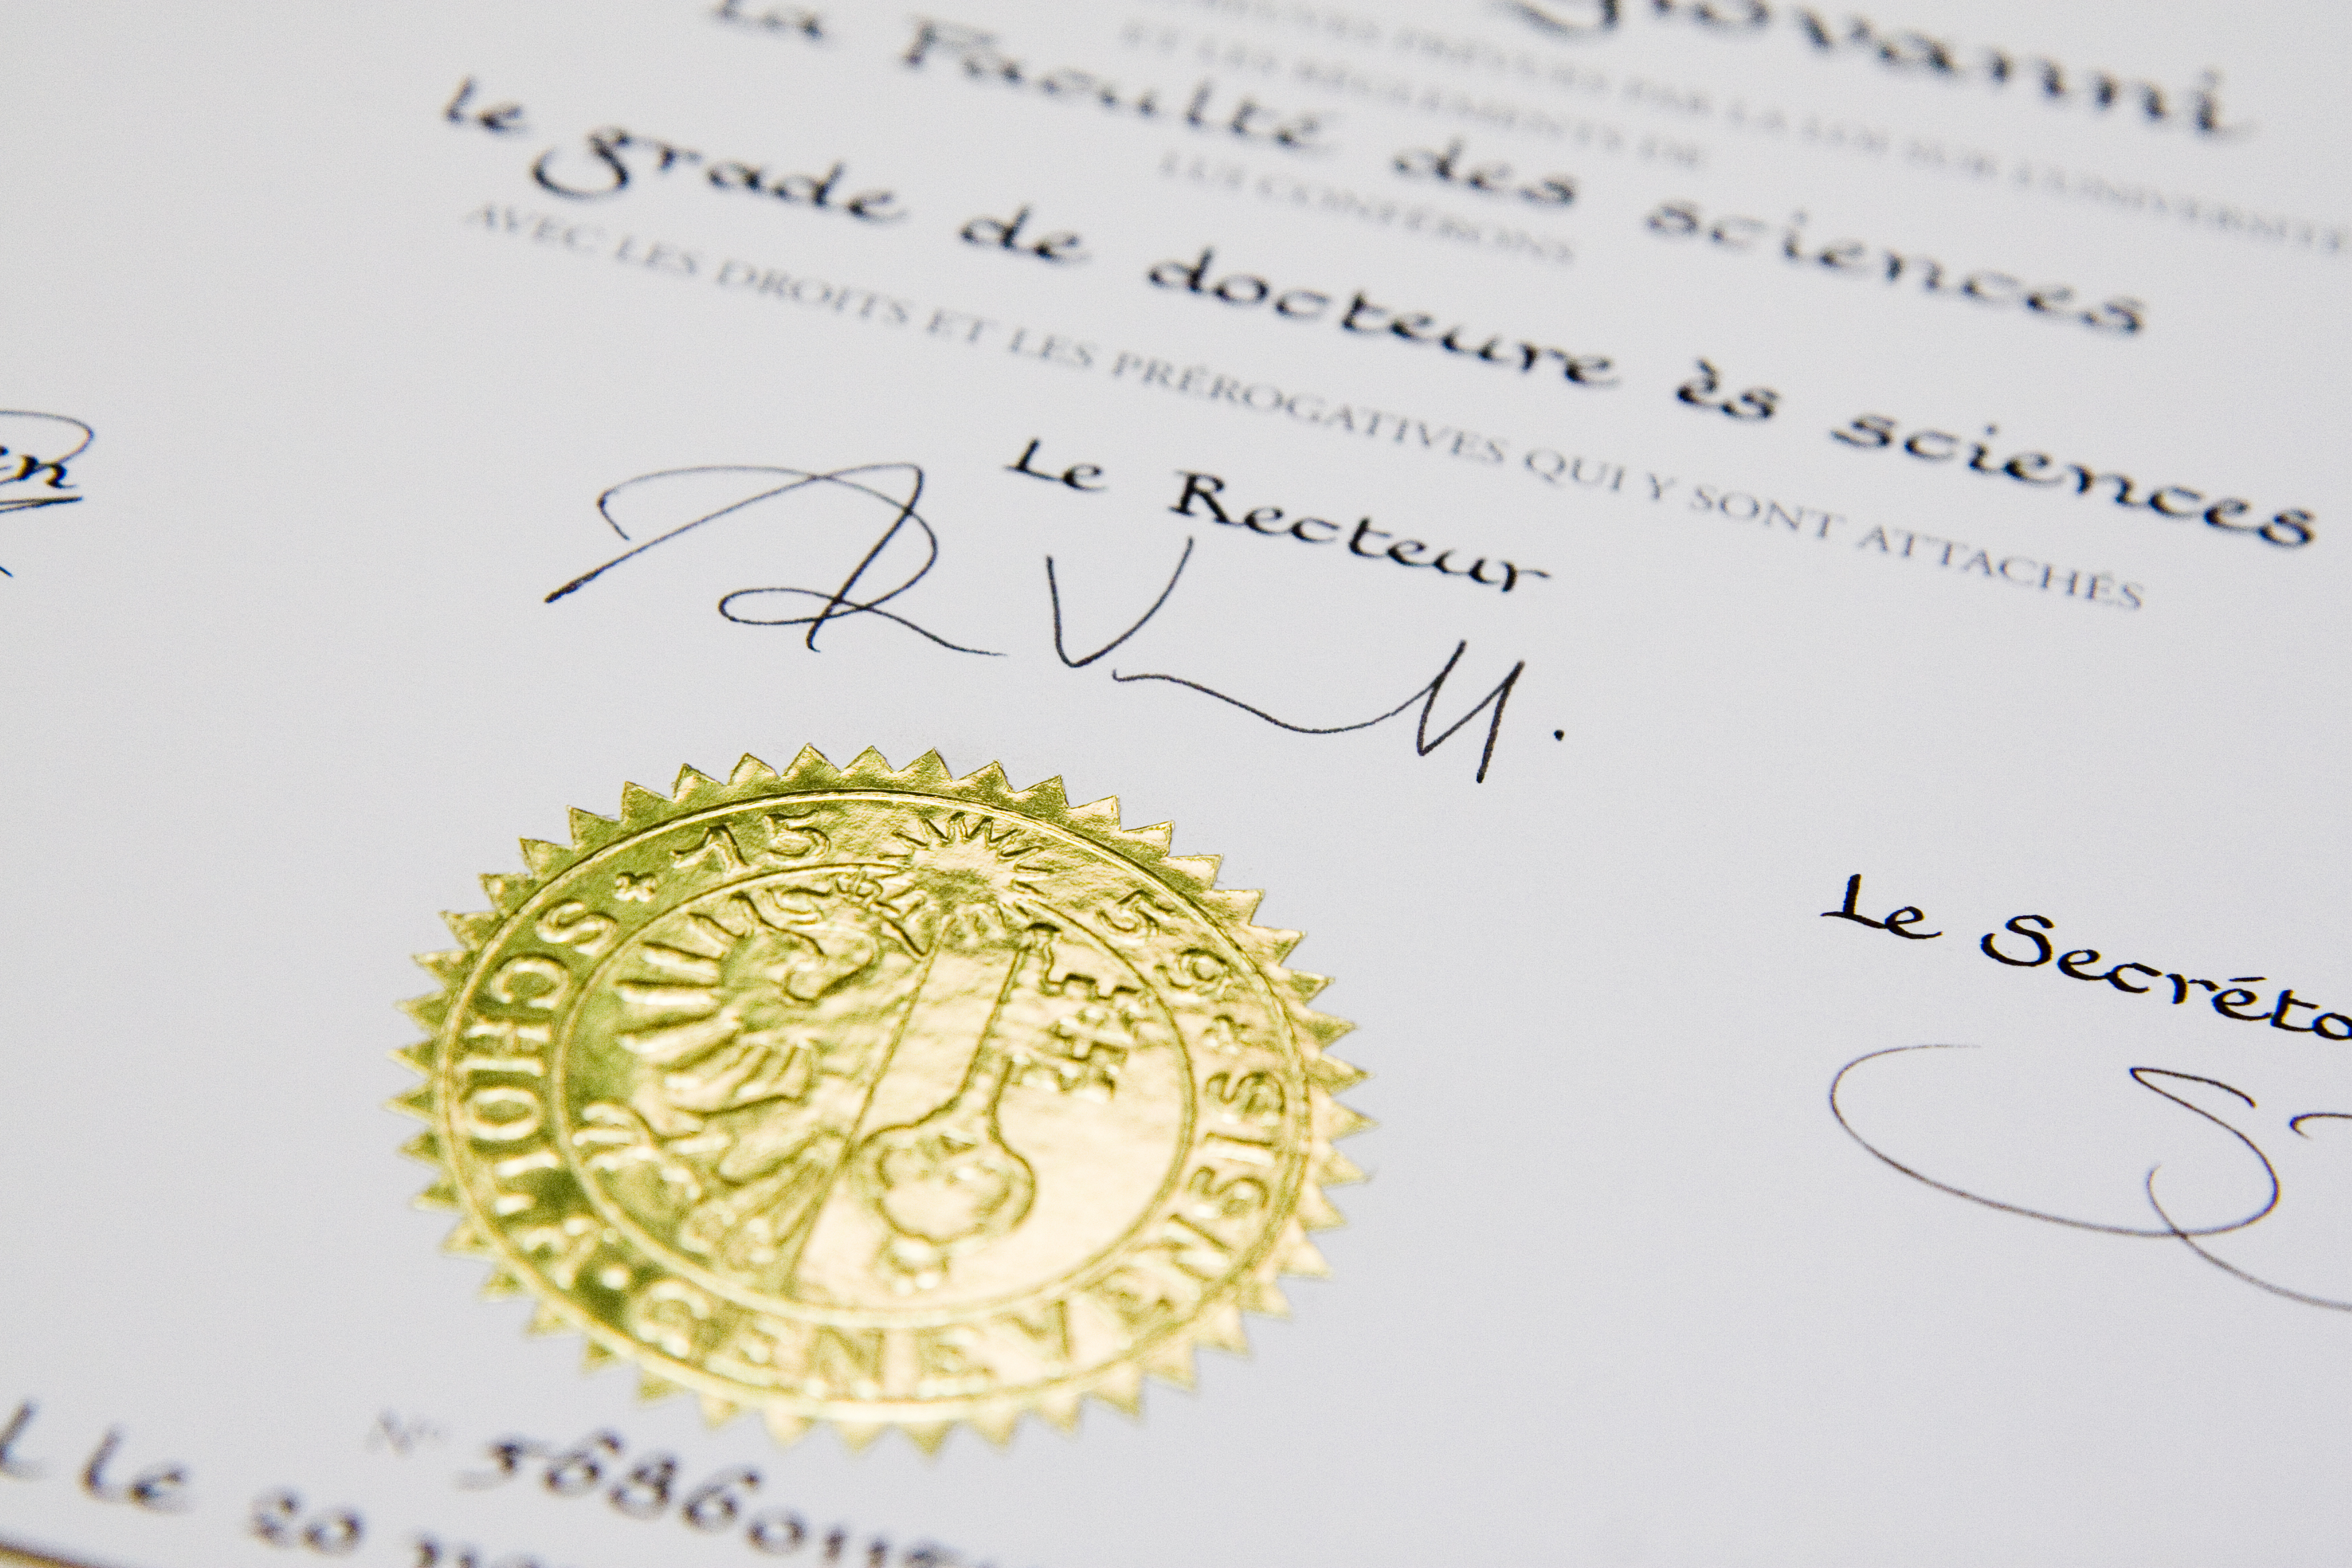 Giovanni
PRÉVUES PAR LA LOI SUR L'UNIVERSITÉ
ET LES RÈGLEMENTS DE
La Faculté des sciences
LUI CONFÉRONS
le grade de docteure ès sciences
AVEC LES DROITS ET LES PRÉROGATIVES QUI Y SONT ATTACHÉS
Le Recteur
Le Secréta
SCHOLA · GENEVENSIS
15 59
N°
le 20